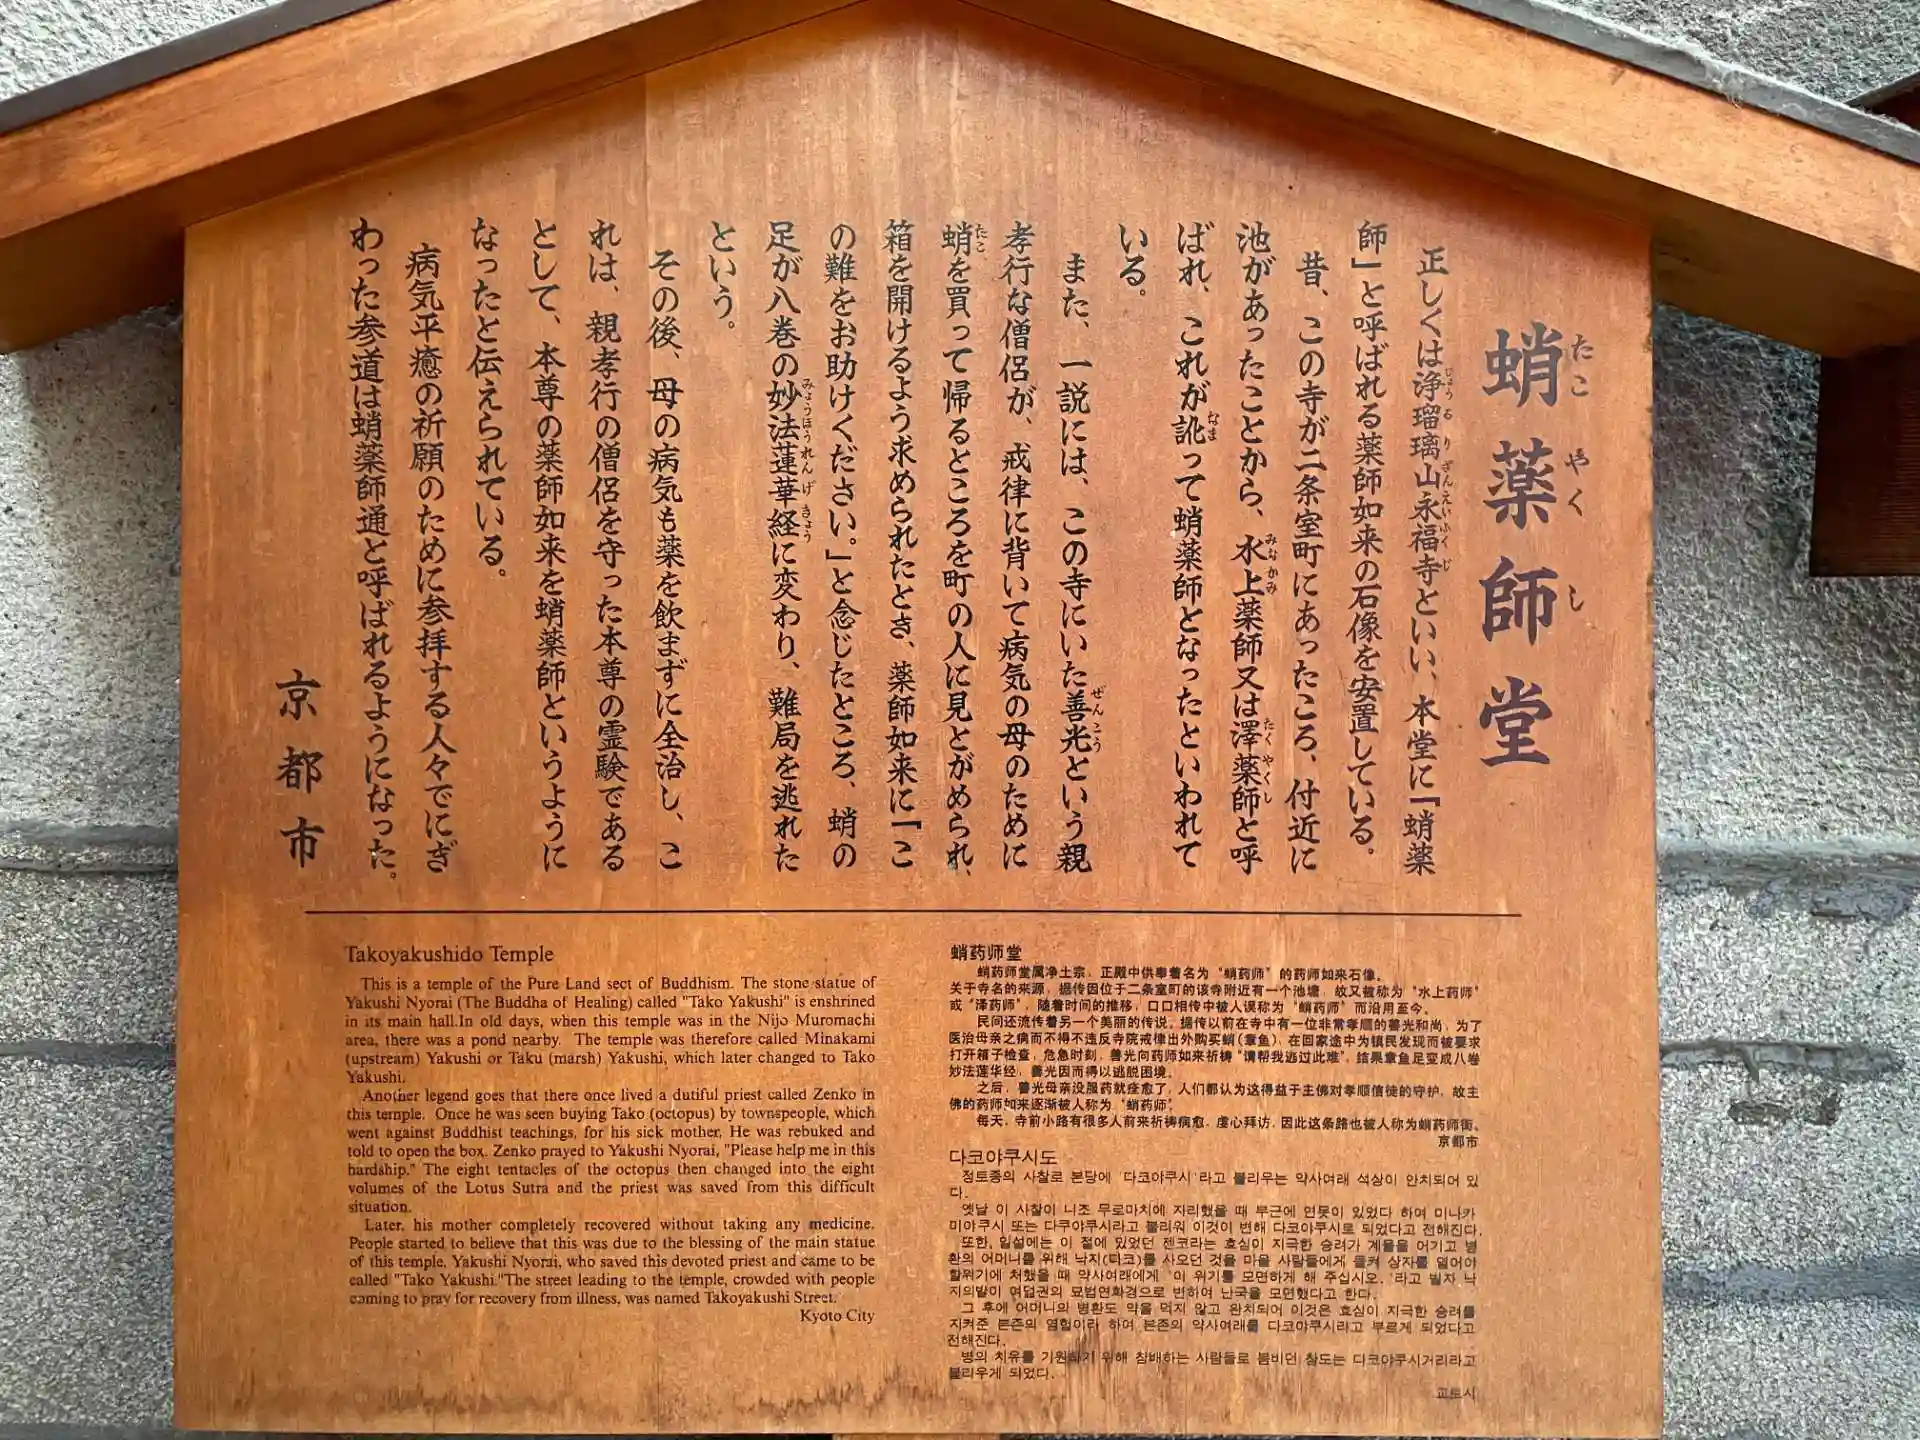 蛸薬師堂
正しくは浄瑠璃山永福寺といい、本堂に「蛸薬
師」と呼ばれる薬師如来の石像を安置している。
昔、この寺が二条室町にあったころ、付近に
池があったことから、水上薬師又は澤薬師と呼
ばれ、これが訛って蛸薬師となったといわれて
いる。
また、一説には、この寺にいた善光という親
孝行な僧侶が、戒律に背いて病気の母のために
蛸を買って帰るところを町の人に見とがめられ、
箱を開けるよう求められたとき、薬師如来に「こ
の難をお助けください。」と念じたところ、蛸の
足が八巻の妙法蓮華経に変わり、難局を逃れた
という。
その後、母の病気も薬を飲まずに全治し、こ
れは、親孝行の僧侶を守った本尊の霊験である
として、本尊の薬師如来を蛸薬師というように
なったと伝えられている。
病気平癒の祈願のために参拝する人々でにぎ
わった参道は蛸薬師通と呼ばれるようになった。
京都市
Takoyakushido Temple
This is a temple of the Pure Land sect of Buddhism. The stone statue of
Yakushi Nyorai (The Buddha of Healing) called "Tako Yakushi" is enshrined
in its main hall.In old days, when this temple was in the Nijo Muromachi
area, there was a pond nearby. The temple was therefore called Minakami
(upstream) Yakushi or Taku (marsh) Yakushi, which later changed to Tako
Yakushi.
Another legend goes that there once lived a dutiful priest called Zenko in
this temple. Once he was seen buying Tako (octopus) by townspeople, which
went against Buddhist teachings, for his sick mother, He was rebuked and
told to open the box. Zenko prayed to Yakushi Nyorai, "Please help me in this
hardship." The eight tentacles of the octopus then changed into the eight
volumes of the Lotus Sutra and the priest was saved from this difficult
situation.
Later, his mother completely recovered without taking any medicine.
People started to believe that this was due to the blessing of the main statue
of this temple, Yakushi Nyorai, who saved this devoted priest and came to be
called "Tako Yakushi."The street leading to the temple, crowded with people
coming to pray for recovery from illness, was named Takoyakushi Street.
Kyoto City
蛸药师堂
蛸药师堂属净土宗，正殿中供奉着名为“蛸药师”的药师如来石像。
关于寺名的来源，据传因位于二条室町的该寺附近有一个池塘，故又被称为“水上药师”
或“泽药师”，随着时间的推移，口口相传中被人误称为“蛸药师”而沿用至今。
民间还流传着另一个美丽的传说。据传以前在寺中有一位非常孝顺的善光和尚，为了
医治母亲之病而不得不违反寺院戒律出外购买蛸（章鱼），在回家途中为镇民发现而被要求
打开箱子检查，危急时刻，善光向药师如来祈祷“请帮我逃过此难”，结果章鱼足变成八卷
妙法莲华经，善光因而得以逃脱困境。
之后，善光母亲没服药就痊愈了，人们都认为这得益于主佛对孝顺信徒的守护，故主
佛的药师如来逐渐被人称为“蛸药师”。
每天，寺前小路有很多人前来祈祷病愈，虔心拜访，因此这条路也被人称为蛸药师街。
京都市
다코야쿠시도
정토종의 사찰로 본당에 '다코야쿠시'라고 불리우는 약사여래 석상이 안치되어 있
다.
옛날 이 사찰이 니조 무로마치에 자리했을 때 부근에 연못이 있었다 하여 미나카
미야쿠시 또는 다쿠야쿠시라고 불리워 이것이 변해 다코야쿠시로 되었다고 전해진다.
또한, 일설에는 이 절에 있었던 젠코라는 효심이 지극한 승려가 계율을 어기고 병
환의 어머니를 위해 낙지(다코)를 사오던 것을 마을 사람들에게 들켜 상자를 열어야
할위기에 처했을 때 약사여래에게 '이 위기를 모면하게 해 주십시오.'라고 빌자 낙
지의발이 여덟권의 묘법연화경으로 변하여 난국을 모면했다고 한다.
그 후에 어머니의 병환도 약을 먹지 않고 완치되어 이것은 효심이 지극한 승려를
지켜준 본존의 영험이라 하여 본존의 약사여래를 다코야쿠시라고 부르게 되었다고
전해진다.
병의 치유를 기원하기 위해 참배하는 사람들로 붐비던 참도는 다코야쿠시거리라고
불리우게 되었다.
교토시